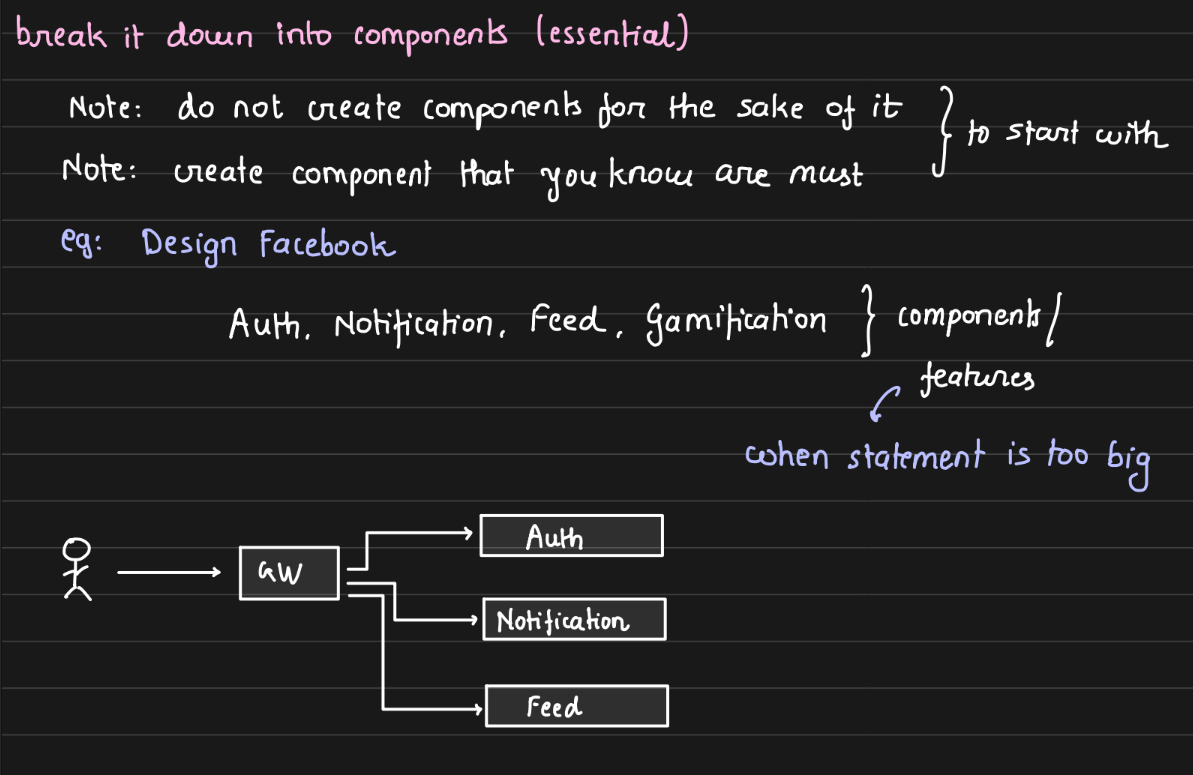 break it down into components (essential)
Note: do not create components for the sake of it
Note: create component that you know are must
} to start with
eg: Design Facebook
Auth, Notification, Feed, Gamification } components/
features
when statement is too big
GW
Auth
Notification
Feed